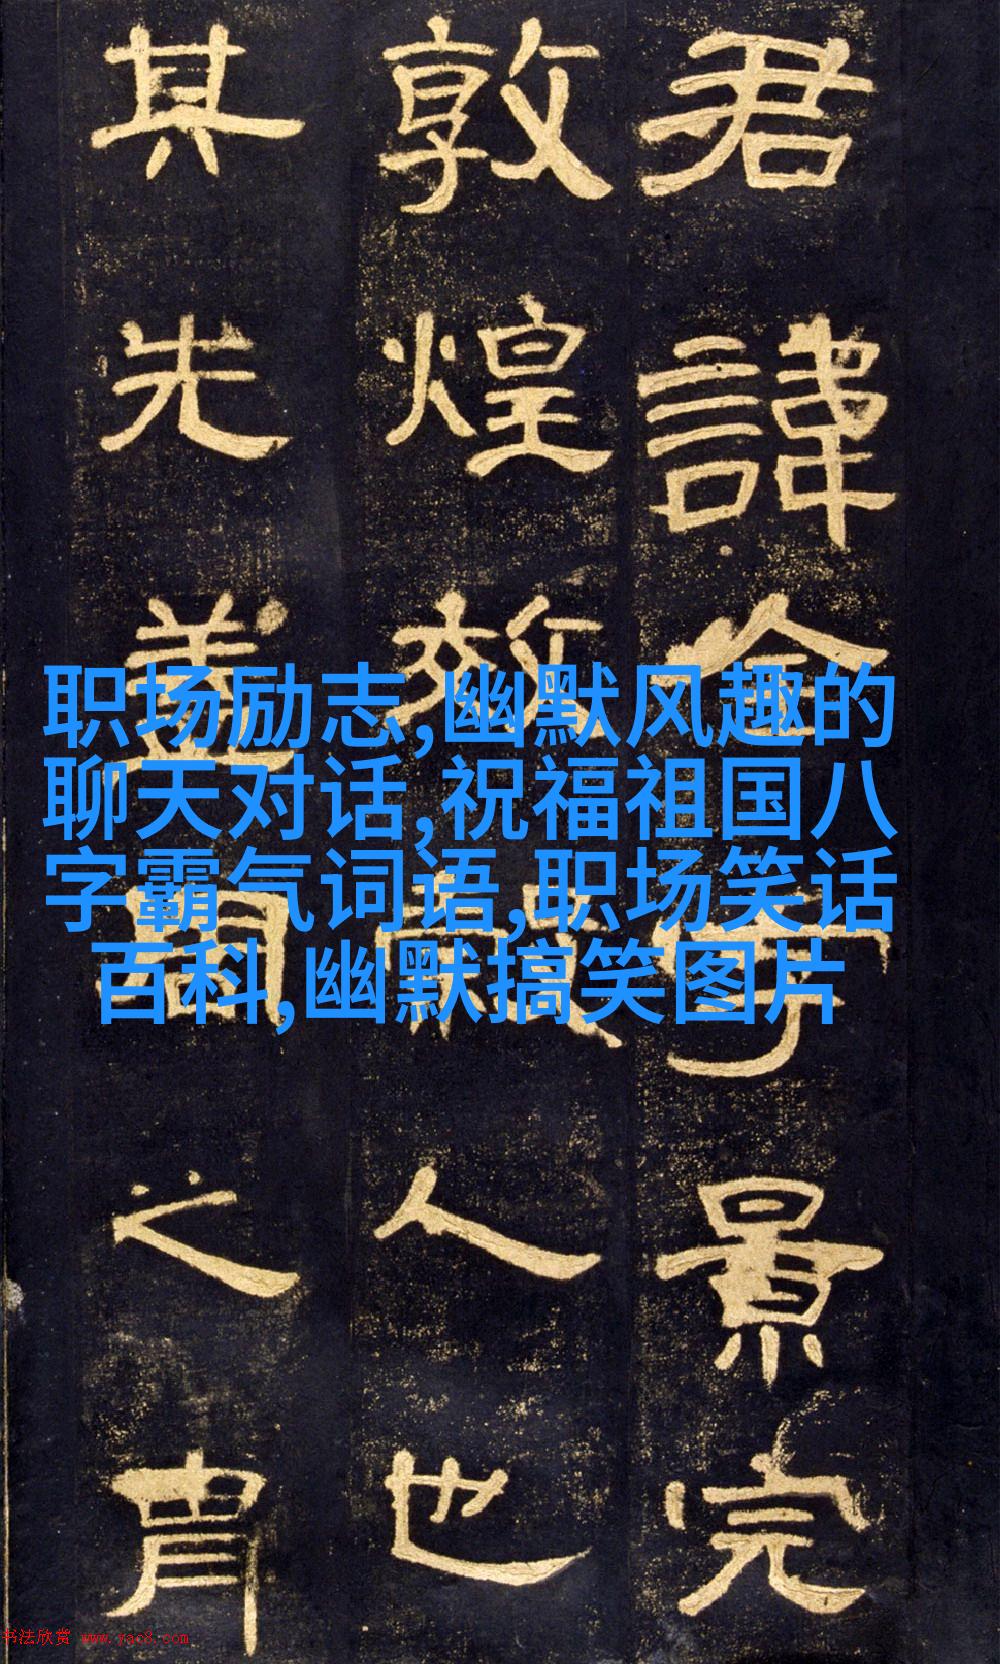 君諱全字景完
敦煌效穀人也
其先蓋周之胄
职场励志,幽默风趣的
聊天对话,祝福祖国八
字霸气词语,职场笑话
百科,幽默搞笑图片
书法欣赏 www.yac8.com